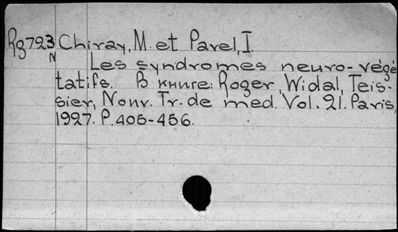 Rg723 Chiray, M. et Pavel, I.
N
Les syndromes neuro-végé
tatifs. В книге: Roger, Widal, Teis-
sier, Nouv. Tr. de med. Vol. 21. Paris,
1927. P. 405-456.